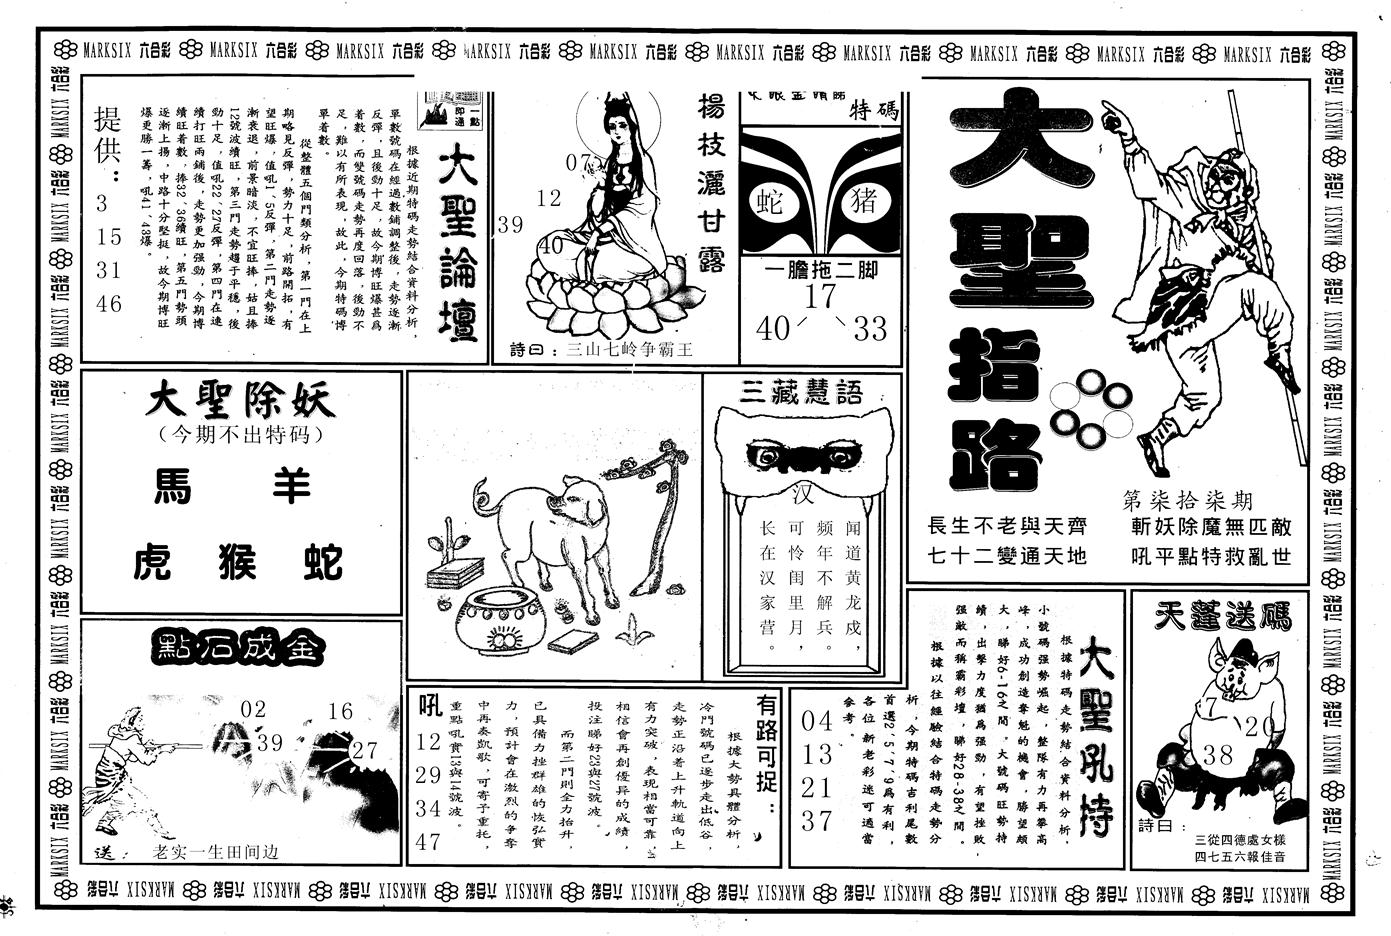 MARKSIX 六合彩 MARKSIX 六合彩 MARKSIX 六合彩 MARKSIX 六合彩 MARKSIX 六合彩 MARKSIX 六合彩 MARKSIX 六合彩 MARKSIX 六合彩 MARKSIX 六合彩 MARKSIX 六合彩
大聖指路
第柒拾柒期
長生不老與天齊
七十二變通天地
斬妖除魔無匹敵
吼平點特救亂世
特碼
蛇
猪
一膽拖二脚
17
40
33
楊枝灑甘露
07
12
39
40
詩曰：三山七岭争霸王
一點即通
大聖論壇
根據近期特碼走勢結合資料分析，
單數號碼在經過數鋪調整後，走勢逐漸
反彈，且後勁十足，故今期博旺爆甚爲
着數，而雙號碼走勢再度回落，後勁不
足，難以有所表現，故此，今期特碼博
單着數。
從整體五個門類分析，第一門在上
期略見反彈，勢力十足，前路開拓，有
望旺爆，值吼1、5反彈，第二門走勢逐
漸衰退，前景暗淡，不宜旺捧，姑且捧
12號波續旺，第三門走勢趨于平穩，後
勁十足，值吼22、27反彈，第四門在連
續打旺兩鋪後，走勢更加强勁，今期博
續旺着數，捧32、36續旺，第五門勢頭
逐漸上揚，中路十分堅挺，故今期博旺
爆更勝一籌，吼41、43爆。
提供：
3
15
31
46
大聖除妖
（今期不出特码）
馬 羊
虎 猴 蛇
三藏慧語
汉
闻道黄龙戍，
频年不解兵。
可怜闺里月，
长在汉家营。
點石成金
02
16
39
27
送： 老实一生田间边
有路可捉：
根據大勢具體分析，
冷門號碼已逐步走出低谷，
走勢正沿着上升軌道向上
有力突破，表現相當可靠，
相信會再創優异的成績，
投注睇好23與27號波。
而第二門則全力抬升，
已具備力挫群雄的恢弘實
力，預計會在激烈的争奪
中再奏凱歌，可寄予重托，
重點吼實13與14號波。
吼
12
29
34
47
大聖吼特
根據特碼走勢結合資料分析，
小號碼强勢崛起，整隊有力再攀高
峰，成功創造奪魁的機會，勝望頗
大，睇好6-16之間。大號碼旺勢持
續，出擊力度猶爲强勁，有望挫敗
强敵而稱霸彩壇，睇好28-38之間。
根據以往經驗結合特碼走勢分
析，今期特碼吉利尾數
首選2、5、7、9爲有利，
各位新老彩迷可適當
參考。
04
13
21
37
天蓬送碼
7
20
38
詩曰：
三從四德處女樣
四七五六報佳音